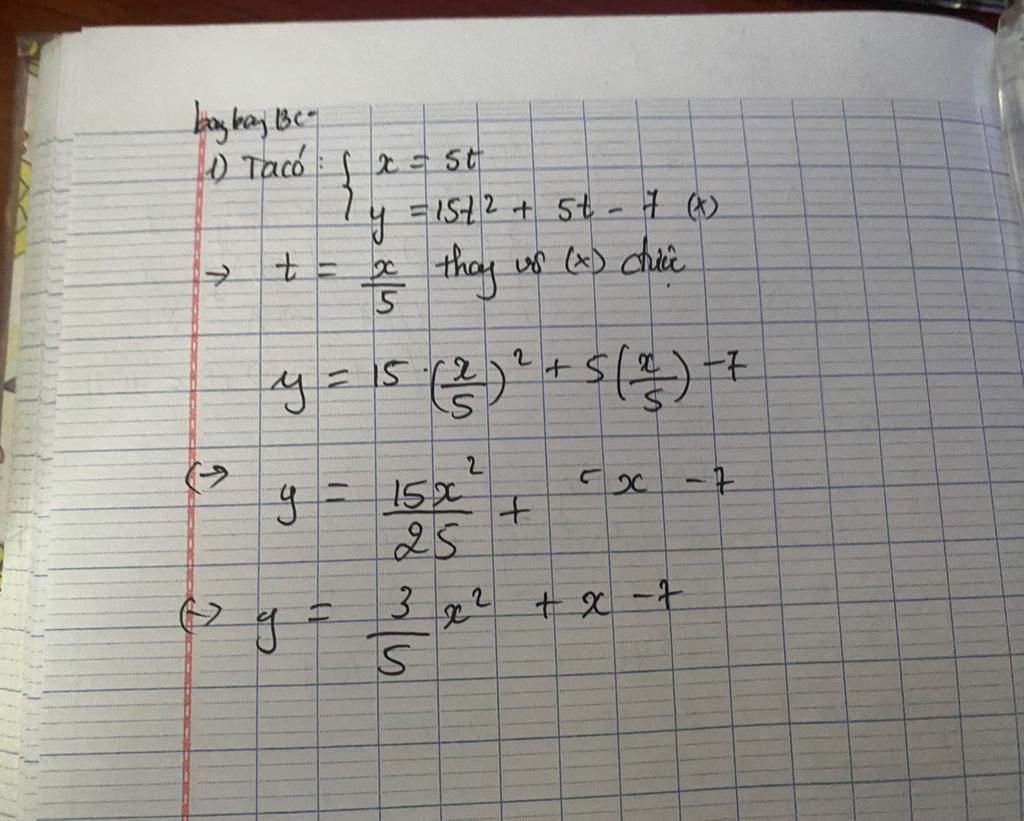 1) Ta có : { x = 5t
y = 15t² + 5t - 7 (*)
→ t = x/5 thay vô (*) được
y = 15 . (x/5)² + 5(x/5) - 7
(→ y = 15x²/25 + x - 7
(→ y = 3/5 x² + x - 7